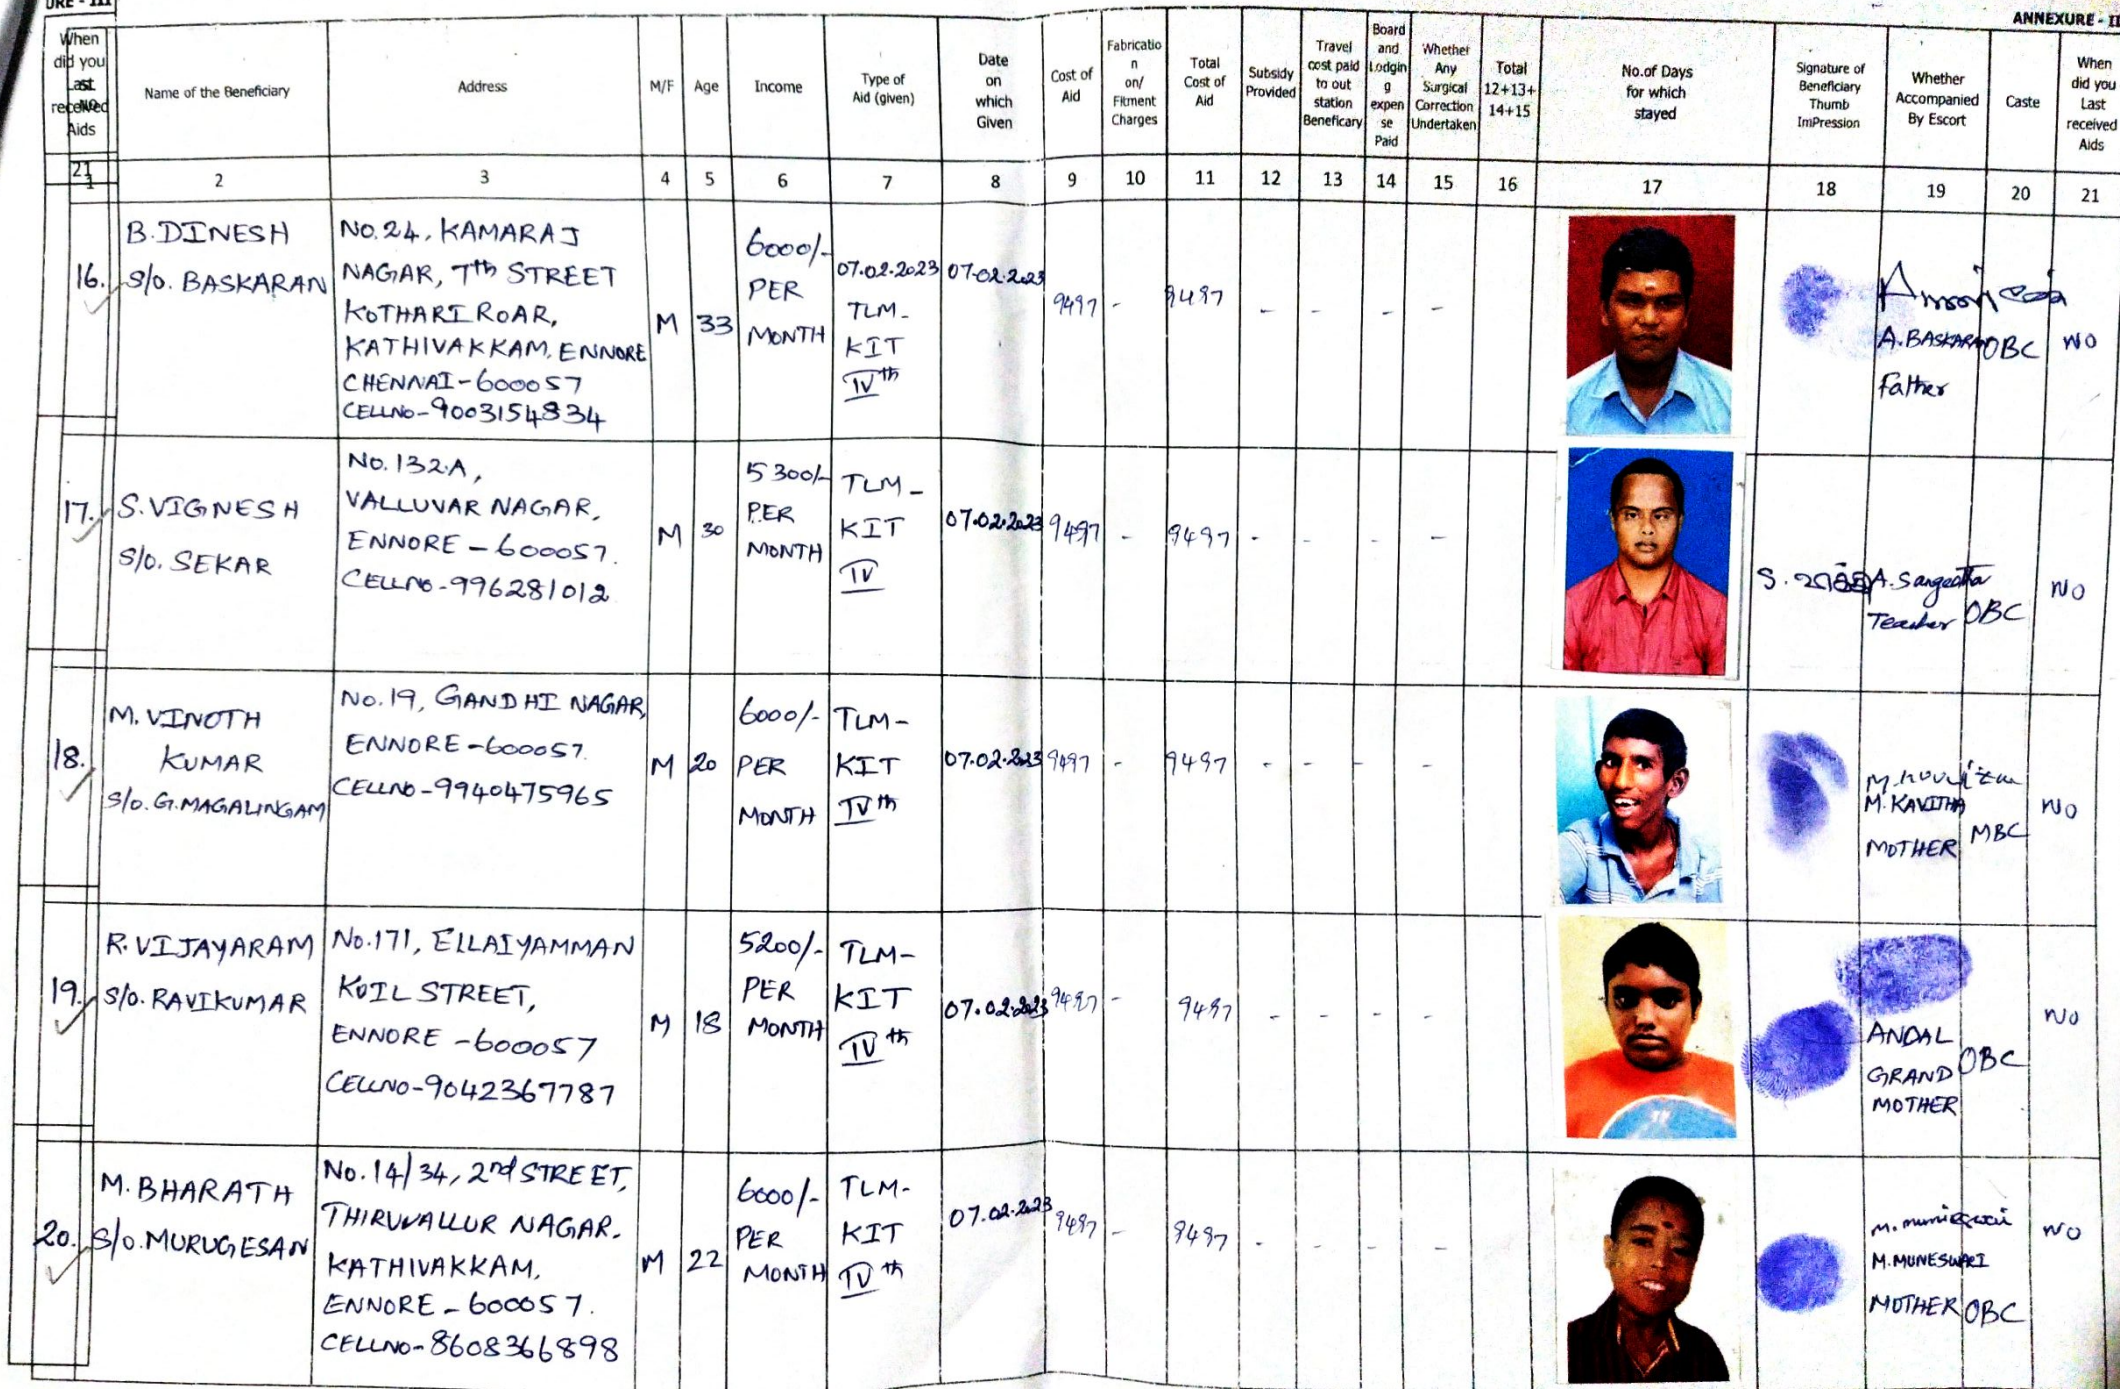 URE - III
ANNEXURE - II
When did you Last received Aids
No
Name of the Beneficiary
Address
M/F
Age
Income
Type of Aid (given)
Date on which Given
Cost of Aid
Fabricatio n on/ Fitment Charges
Total Cost of Aid
Subsidy Provided
Travel cost paid to out station Beneficary
Board and Lodgin g expen se Paid
Whether Any Surgical Correction Undertaken
Total 12+13+ 14+15
No.of Days for which stayed
Signature of Beneficiary Thumb ImPression
Whether Accompanied By Escort
Caste
When did you Last received Aids
21
1 2 3 4 5 6 7 8 9 10 11 12 13 14 15 16 17 18 19 20 21
16.
B.DINESH
S/o. BASKARAN
No.24, KAMARAJ
NAGAR, 7th STREET
KOTHARI ROAR,
KATHIVAKKAM, ENNORE
CHENNAI-600057
CELLNO-9003154834
M
33
6000/-
PER
MONTH
07.02.2023
TLM-
KIT
IVth
07.02.2023
9497
-
9497
- - - -
A.BASKARAN
Father
OBC
NO
17.
S.VIGNESH
S/o. SEKAR
No.132.A,
VALLUVAR NAGAR,
ENNORE - 600057.
CELLNO-996281012
M
30
5300/-
PER
MONTH
TLM-
KIT
IV
07.02.2023
9497
-
9497
- - - -
S.
A.Sangeetha
Teacher
OBC
NO
18.
M.VINOTH
KUMAR
S/o.G.MAGALINGAM
No.19, GANDHI NAGAR,
ENNORE-600057.
CELLNO-9940475965
M
20
6000/-
PER
MONTH
TLM-
KIT
IVth
07.02.2023
9497
-
9497
- - - -
M.KAVITHA
MOTHER
MBC
NO
19.
R.VIJAYARAM
S/o.RAVIKUMAR
No.171, ELLAIYAMMAN
KOIL STREET,
ENNORE -600057
CELLNO-9042367787
M
18
5200/-
PER
MONTH
TLM-
KIT
IVth
07.02.2023
9497
-
9497
- - - -
ANDAL
GRAND
MOTHER
OBC
NO
20.
M.BHARATH
S/o.MURUGESAN
No.14/34, 2nd STREET,
THIRUVALLUR NAGAR.
KATHIVAKKAM,
ENNORE - 600057.
CELLNO-8608366898
M
22
6000/-
PER
MONTH
TLM-
KIT
IVth
07.02.2023
9497
-
9497
- - - -
M.MUNESWARI
MOTHER
OBC
NO